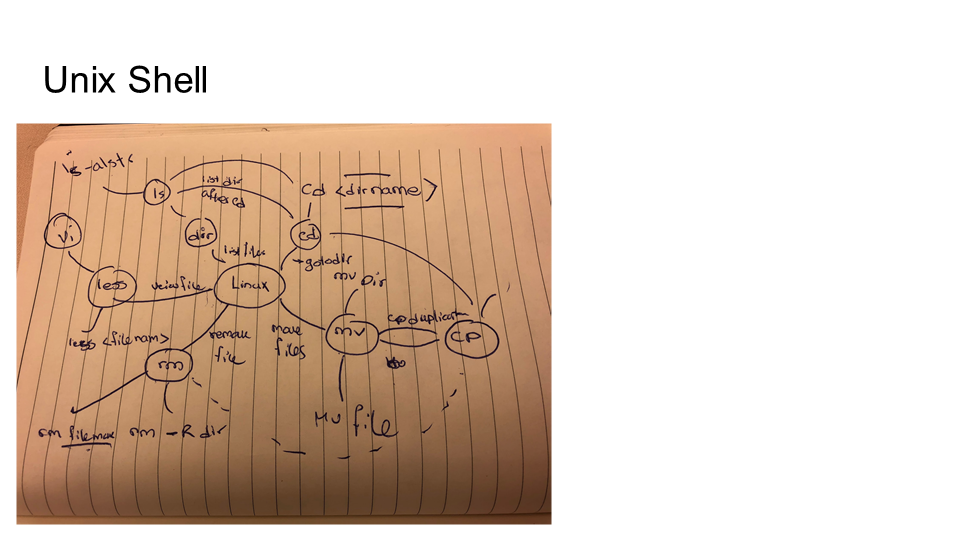 Unix Shell
ls
list dir
after cd
cd <dirname>
vi
dir
cd
list files
less
view file
Linux
mv Dir
less <filenam>
remove
file
move
files
mv
cp duplicat
cp
rm
mv file
rm
rm -R dir